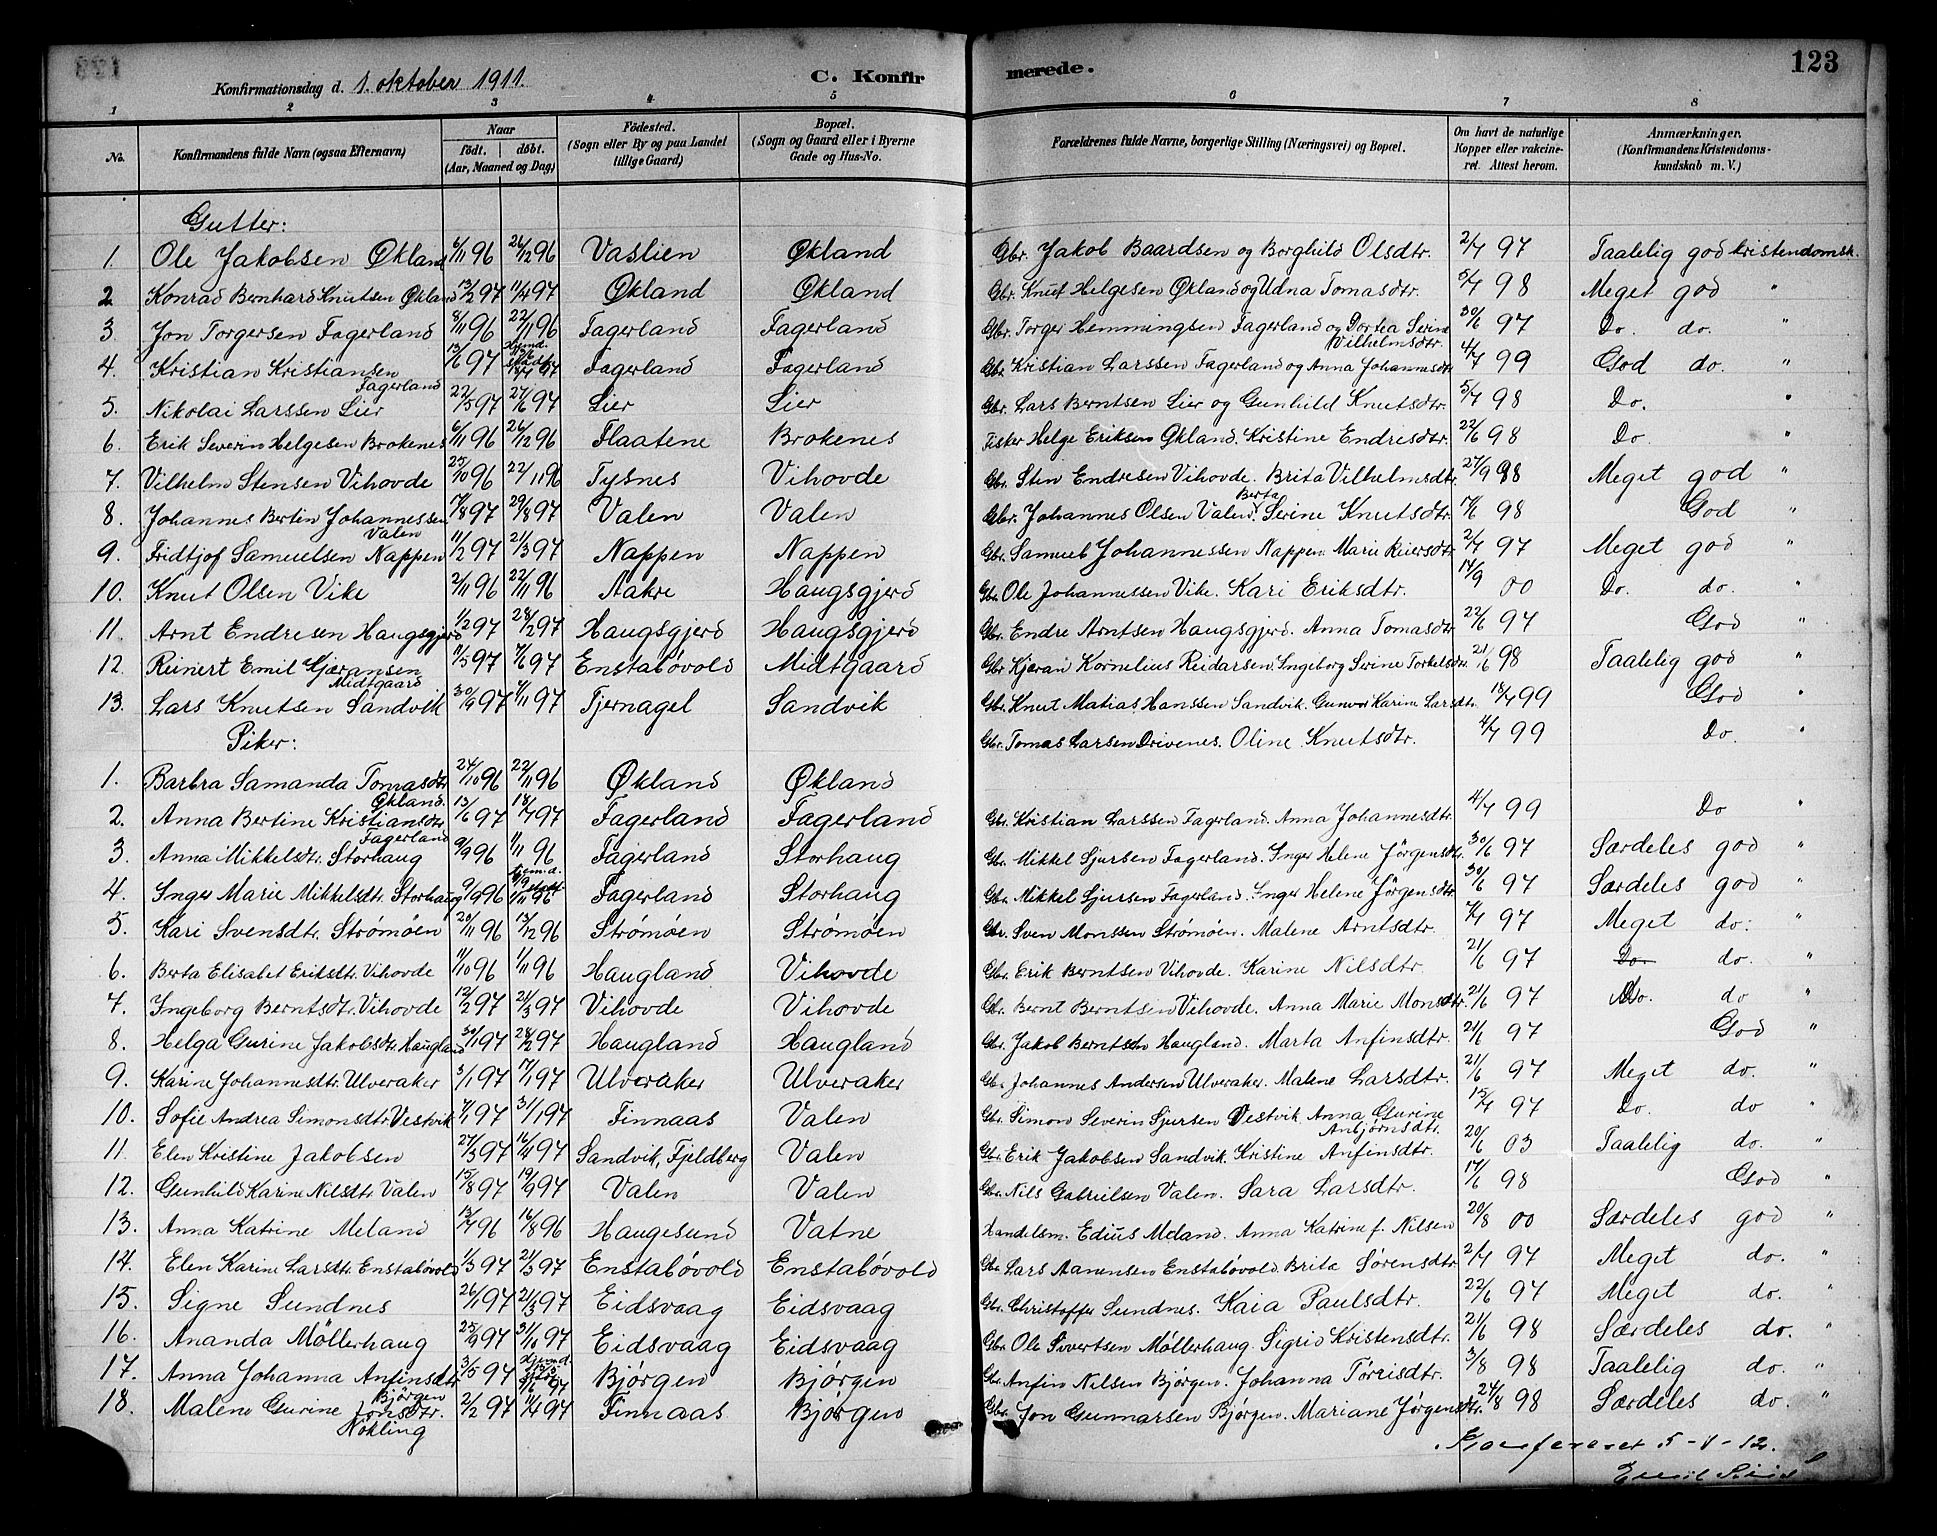 Konfirmationsdag d. 1. oktober 1911. C. Konfirmerede. 123
1 2 3 4 5 6 7 8
No. Konfirmandens fulde Navn (ogsaa Efternavn) Naar født. døbt. (Aar, Maaned og Dag) Fødested. (Sogn eller By og paa Landet tillige Gaard) Bopæl. (Sogn og Gaard eller i Byerne Gade og Hus-No. Forældrenes fulde Navne, borgerlige Stilling (Næringsvei) og Bopæl. Om havt de naturlige Kopper eller vakcineret. Attest herom. Anmærkninger. (Konfirmandens Kristendomskundskab m. V.)
Gutter:
1. Ole Jakobsen Økland 6/11 96 26/12 96 Vaslien Økland Gbr. Jakob Baardsen og Borghild Olsdtr. 2/7 97 Taalelig god kristendomsk.
2 Konrad Bernhard Knutsen Økland 13/2 97 11/4 97 Økland Økland Gbr. Knut Helgesen Økland og Udna Tomasdtr. 5/7 98 Meget god "
3. Jon Torgersen Fagerland 8/11 96 22/11 96 Fagerland Fagerland Gbr. Torger Hemmingsen Fagerland og Dortea Serine Vilhelmsdtr. 30/6 97 Do. do. "
4. Kristian Kristiansen Fagerland 13/6 97 Fagerland Fagerland Gbr. Kristian Larssen Fagerland og Anna Johannesdtr. 4/7 99 God do. "
5. Nikolai Larssen Lier 22/5 97 27/6 97 Lier Lier Gbr. Lars Berntsen Lier og Gunhild Knutsdtr. 5/7 98 Do. "
6. Erik Severin Helgesen Brokenes 6/11 96 26/12 96 Flaatene Brokenes Fisker Helge Eriksen Økland. Kristine Endresdtr. 22/6 98 Do. "
7. Vilhelm Stensen Vihovde 25/10 96 22/11 96 Tysnes Vihovde Gbr. Sten Endresen Vihovde. Brita Vilhelmsdtr. 27/9 98 Meget god "
8. Johannes Bertin Johannessen Valen 17/8 97 29/8 97 Valen Valen Gbr. Johannes Olsen Valen. Berta Serine Knutsdtr. 17/6 98 God "
9. Fridtjof Samuelsen Nappen 11/2 97 21/3 97 Nappen Nappen Gbr. Samuel Johannessen Nappen. Marie Reiersdtr. 2/7 97 Meget god "
10. Knut Olsen Vike 2/11 96 22/11 96 Aakre Haugsgjerd Gbr. Ole Johannessen Vike. Kari Eriksdtr. 14/9 00 Do. do. "
11. Arnt Endresen Haugsgjerd 1/2 97 28/2 97 Haugsgjerd Haugsgjerd Gbr. Endre Arntsen Haugsgjerd. Anna Tomasdtr. 22/6 97 God "
12. Reinert Emil Gjæransen Midtgaard 11/5 97 7/6 97 Enstabøvold Midtgaard Gbr. Kjæran Kornelius Reidarsen. Ingeborg Serine Torkelsdtr. 21/6 98 Taalelig god "
13. Lars Knutsen Sandvik 30/9 97 4/11 97 Tjernagel Sandvik Gbr. Knut Matias Hanssen Sandvik. Gunvor Karine Larsdtr. 18/7 99 God "
Piker: Gbr. Tomas Larsen Drivenes. Oline Knutsdtr. 4/7 99 Do. "
1. Barbra Samanda Tomasdtr Økland. 24/10 96 22/11 96 Økland Økland
2. Anna Bertine Kristiansdtr Fagerland 13/6 97 18/7 97 Fagerland Fagerland Gbr. Kristian Larssen Fagerland. Anna Johannesdtr. 4/7 99 Do "
3. Anna Mikkelsdtr. Storhaug 9/9 96 1/11 96 Fagerland Storhaug Gbr. Mikkel Sjursen Fagerland. Inger Helene Jørgensdtr. 30/6 97 Særdeles god "
4. Inger Marie Mikkelsdtr. Storhaug 9/9 96 Fagerland Storhaug Gbr. Mikkel Sjursen Fagerland. Inger Helene Jørgensdtr. 30/6 97 Særdeles god "
5. Kari Svensdtr. Strømøen 20/11 96 13/12 96 Strømøen Strømøen Gbr. Sven Monssen Strømøen. Malene Arntsdtr. 7/7 97 Meget do. "
6. Berta Elisabet Eriksdtr. Vihovde 11/10 96 1/11 96 Haugland Vihovde Gbr. Erik Berntsen Vihovde. Karine Nilsdtr. 21/6 97 Do. do. "
7. Ingeborg Berntsdtr. Vihovde 12/2 97 21/3 97 Vihovde Vihovde Gbr. Bernt Berntsen Vihovde. Anna Marie Monsdtr. 21/6 97 Do. do "
8. Helga Gurine Jakobsdtr. Haugland 30/1 97 28/2 97 Haugland Haugland Gbr. Jakob Berntsen Haugland. Marta Anfinsdtr. 21/6 97 God "
9. Karine Johannesdtr. Ulveraker 3/1 97 17/1 97 Ulveraker Ulveraker Gbr. Johannes Andersen Ulveraker. Malene Larsdtr. 21/6 97 Meget do. "
10. Sofie Andrea Simonsdtr. Vestvik 7/1 97 31/1 97 Finnaas Valen Gbr. Simon Severin Sjursen Vestvik Anna Gurine Anbjørnsdtr. 15/7 97 Do. do "
11. Elen Kristine Jakobsen 27/3 97 16/4 97 Sandvik, Fjeldberg Valen Gbr. Erik Jakobsen Sandvik. Kristine Anfinsdtr. 20/6 03 Taalelig do. "
12. Gunhild Karine Nilsdtr. Valen 15/8 97 19/9 97 Valen Valen Gbr. Nils Gabrielsen Valen. Sara Larsdtr. 17/6 98 God "
13. Anna Katrine Meland 13/7 96 16/8 96 Haugesund Vatne Handelsm. Edius Meland. Anna Katrine f. Nilsen 20/8 00 Særdeles god "
14. Elen Karine Larsdtr. Enstabøvold 1/3 97 21/3 97 Enstabøvold Enstabøvold Gbr. Lars Aanensen Enstabøvold. Brita Sørensdtr. 2/7 97 Meget do. "
15. Signe Sundnes 26/1 97 21/3 97 Eidsvaag Eidsvaag Gbr. Christoffer Sundnes. Kaia Paulsdtr. 22/6 97 Meget do. "
16. Ananda Møllerhaug 25/9 97 31/10 97 Eidsvaag Eidsvaag Gbr. Ole Sivertsen Møllerhaug. Sigrid Kristensdtr. 21/6 98 Særdeles do. "
17. Anna Johanna Anfinsdtr. Bjørgen 3/5 97 Bjørgen Bjørgen Gbr. Anfin Nilsen Bjørgen. Johanna Tørrisdtr. 3/8 98 Taalelig do. "
18. Malene Gurine Jonsdtr. Nökling 2/2 97 11/4 97 Finnaas Bjørgen Gbr. Jon Gunnarsen Bjørgen. Mariane Jørgensdtr. 24/8 98 Særdeles do. "
Konfereret 5-1-12.